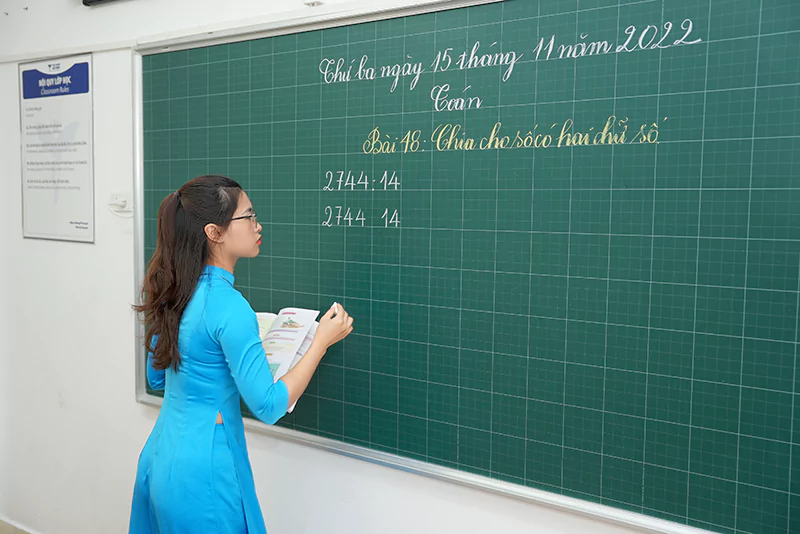 NỘI QUY LỚP HỌC
Classroom Rules
Thứ ba ngày 15 tháng 11 năm 2022
Toán
Bài 48: Chia cho số có hai chữ số
2744 : 14
2744 14